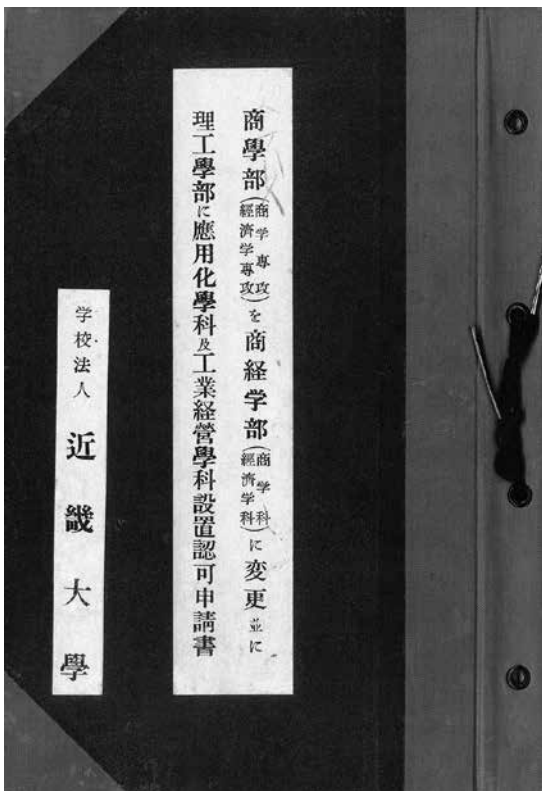 商學部(商学専攻経濟学専攻)を商経学部(商学科経濟学科)に変更並に
理工學部に應用化學科及工業経営學科設置認可申請書
学校法人 近畿大學